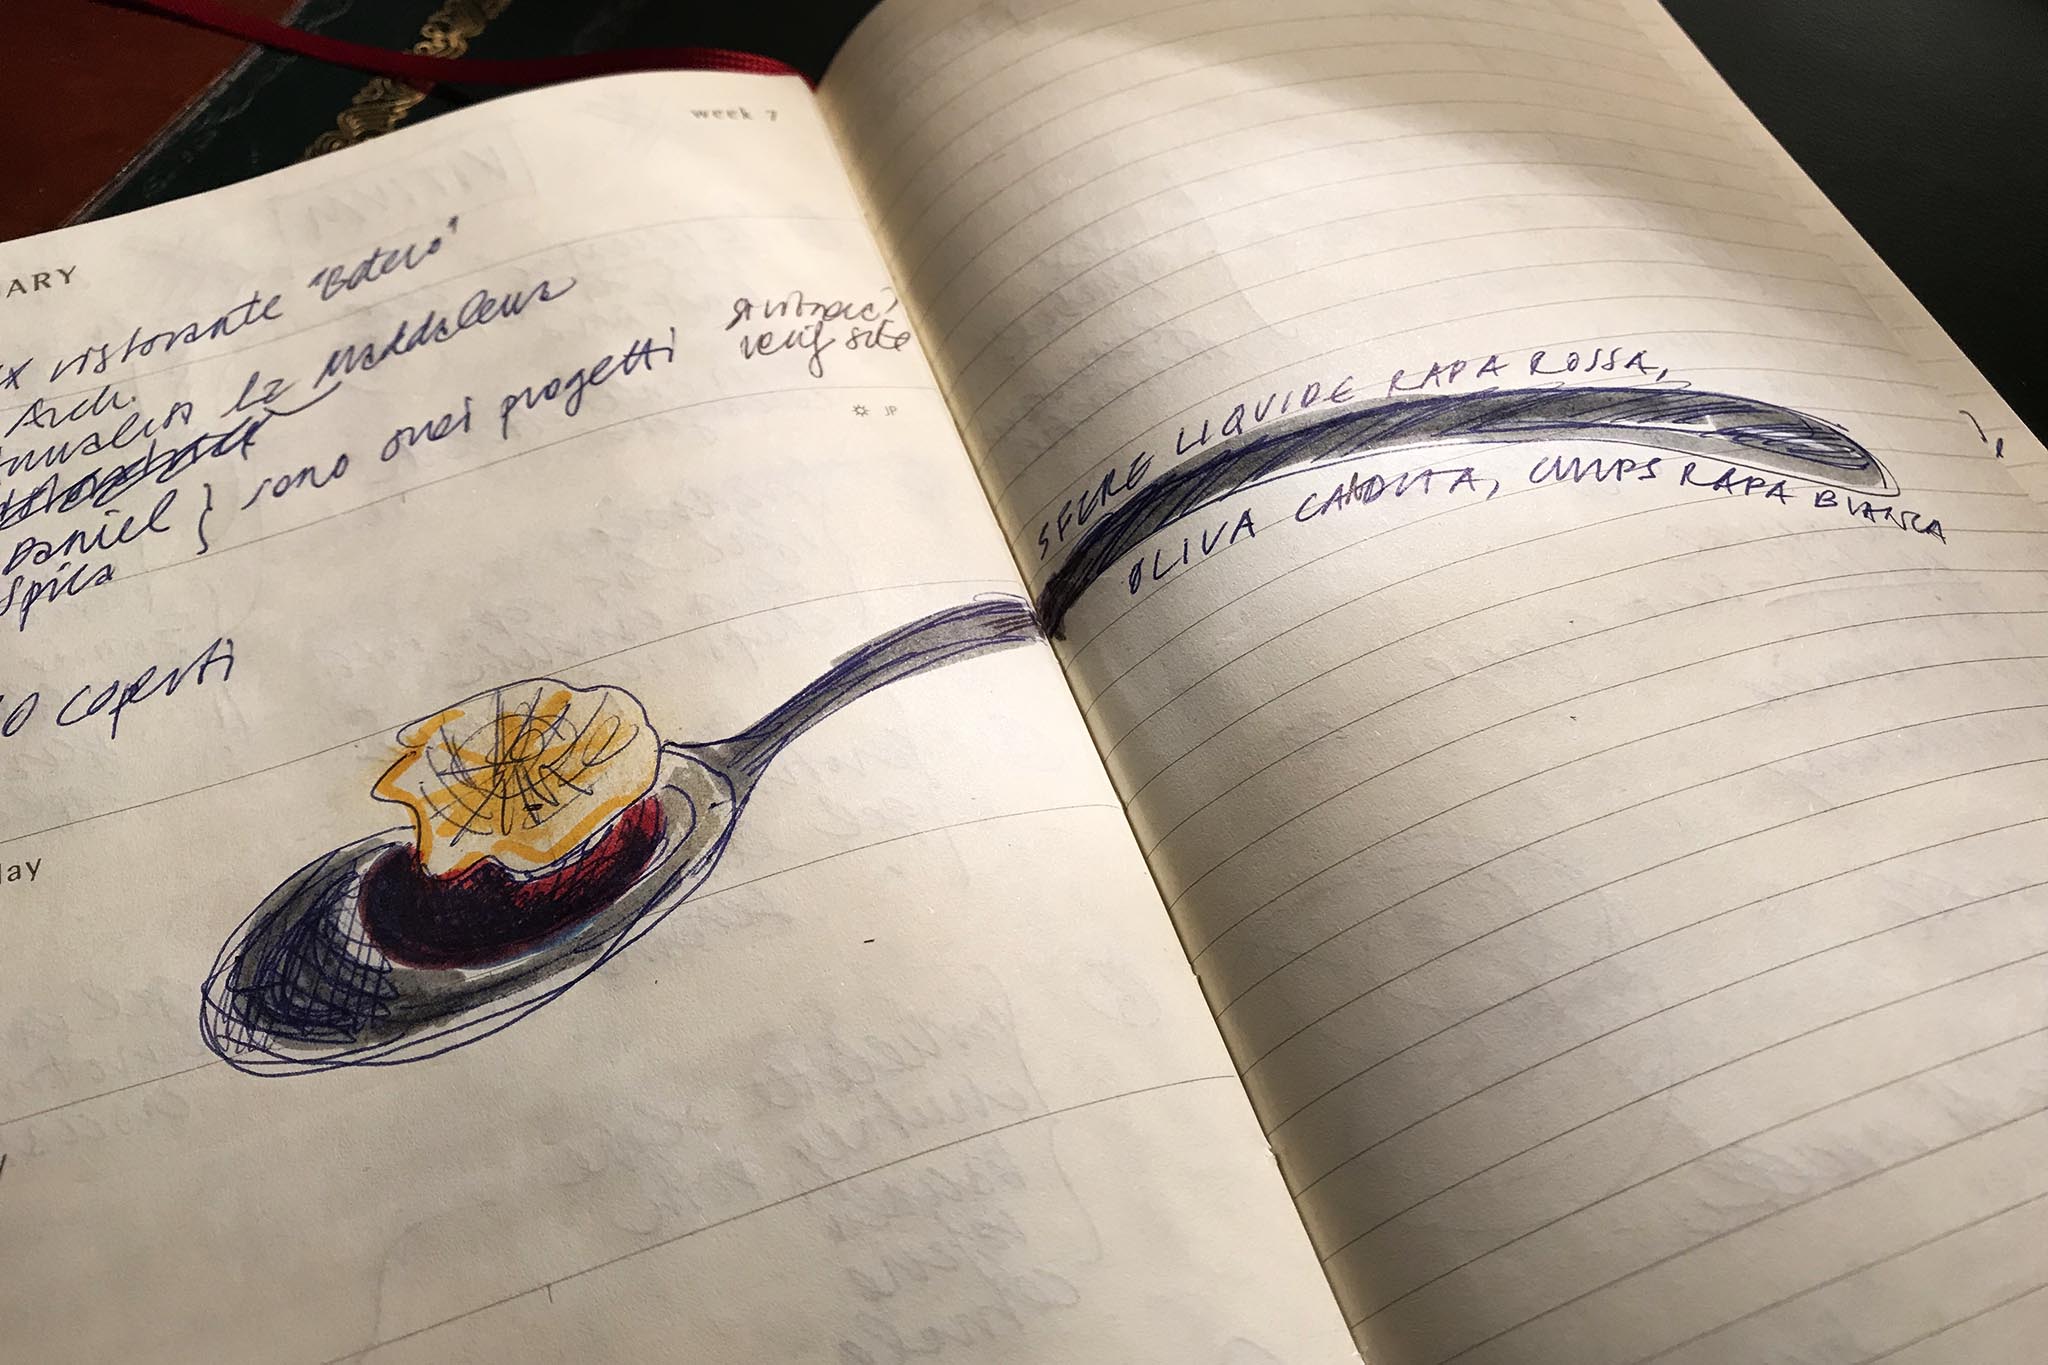 week 7
ARY
ex ristorante "Botero"
Arch.
la Maddalena
Daniel } sono suoi progetti
Spica
verif site
JP
0 coperti
lay
SFERE LIQUIDE RAPA ROSSA,
OLIVA CANDITA, CHIPS RAPA BIANCA